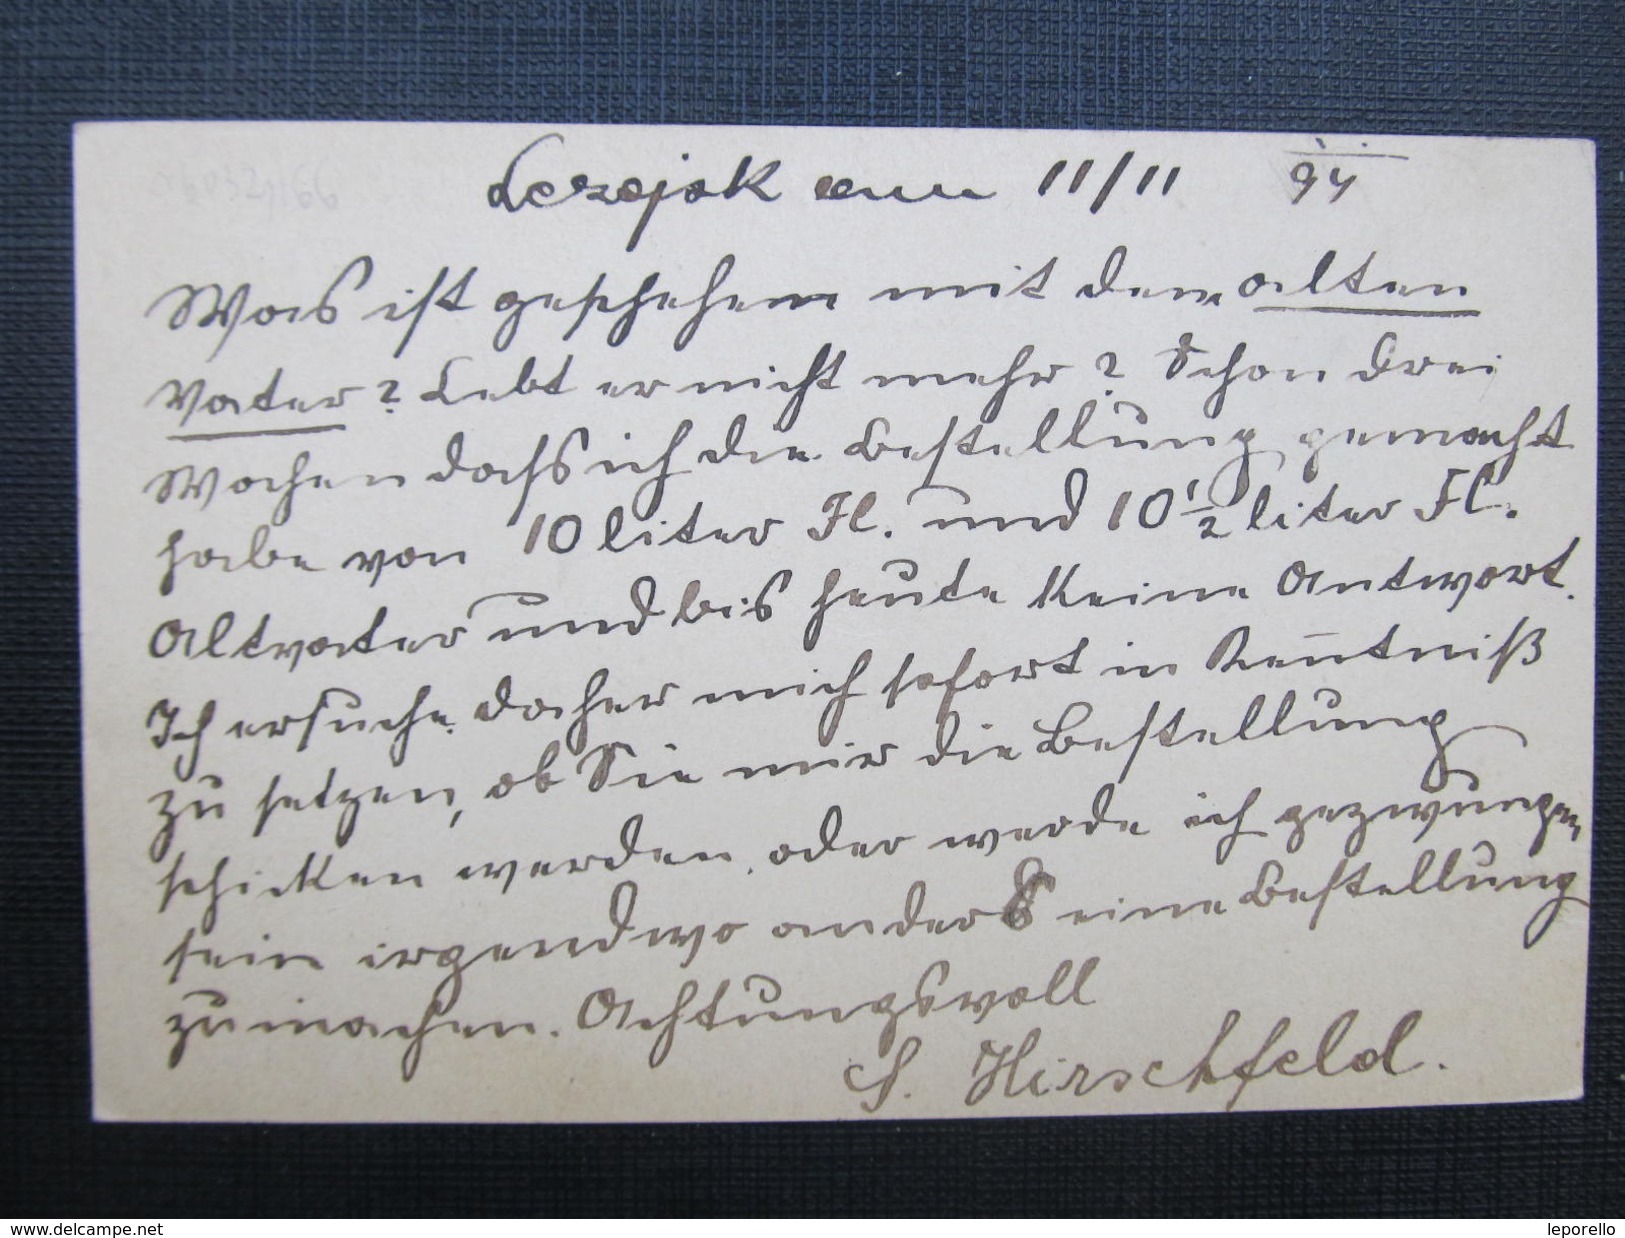 Lezajsk am 11/11 94
Was ist geschehen mit dem alten
Vater? Lebt er nicht mehr? Schon drei
Wochen dass ich die Bestellung gemacht
habe von 10 liter Fl. und 10 1/2 liter Fl.
Altvater und bis heute keine Antwort.
Ich ersuche daher mich sofort in Kenn̄tniß
zu setzen, ob Sie mir die Bestellung
schicken werden, oder werde ich gezwungen
sein irgendwo anders eine Bestellung
zu machen. Achtungsvoll
S. Hirschfeld.
www.delcampe.net
leporello